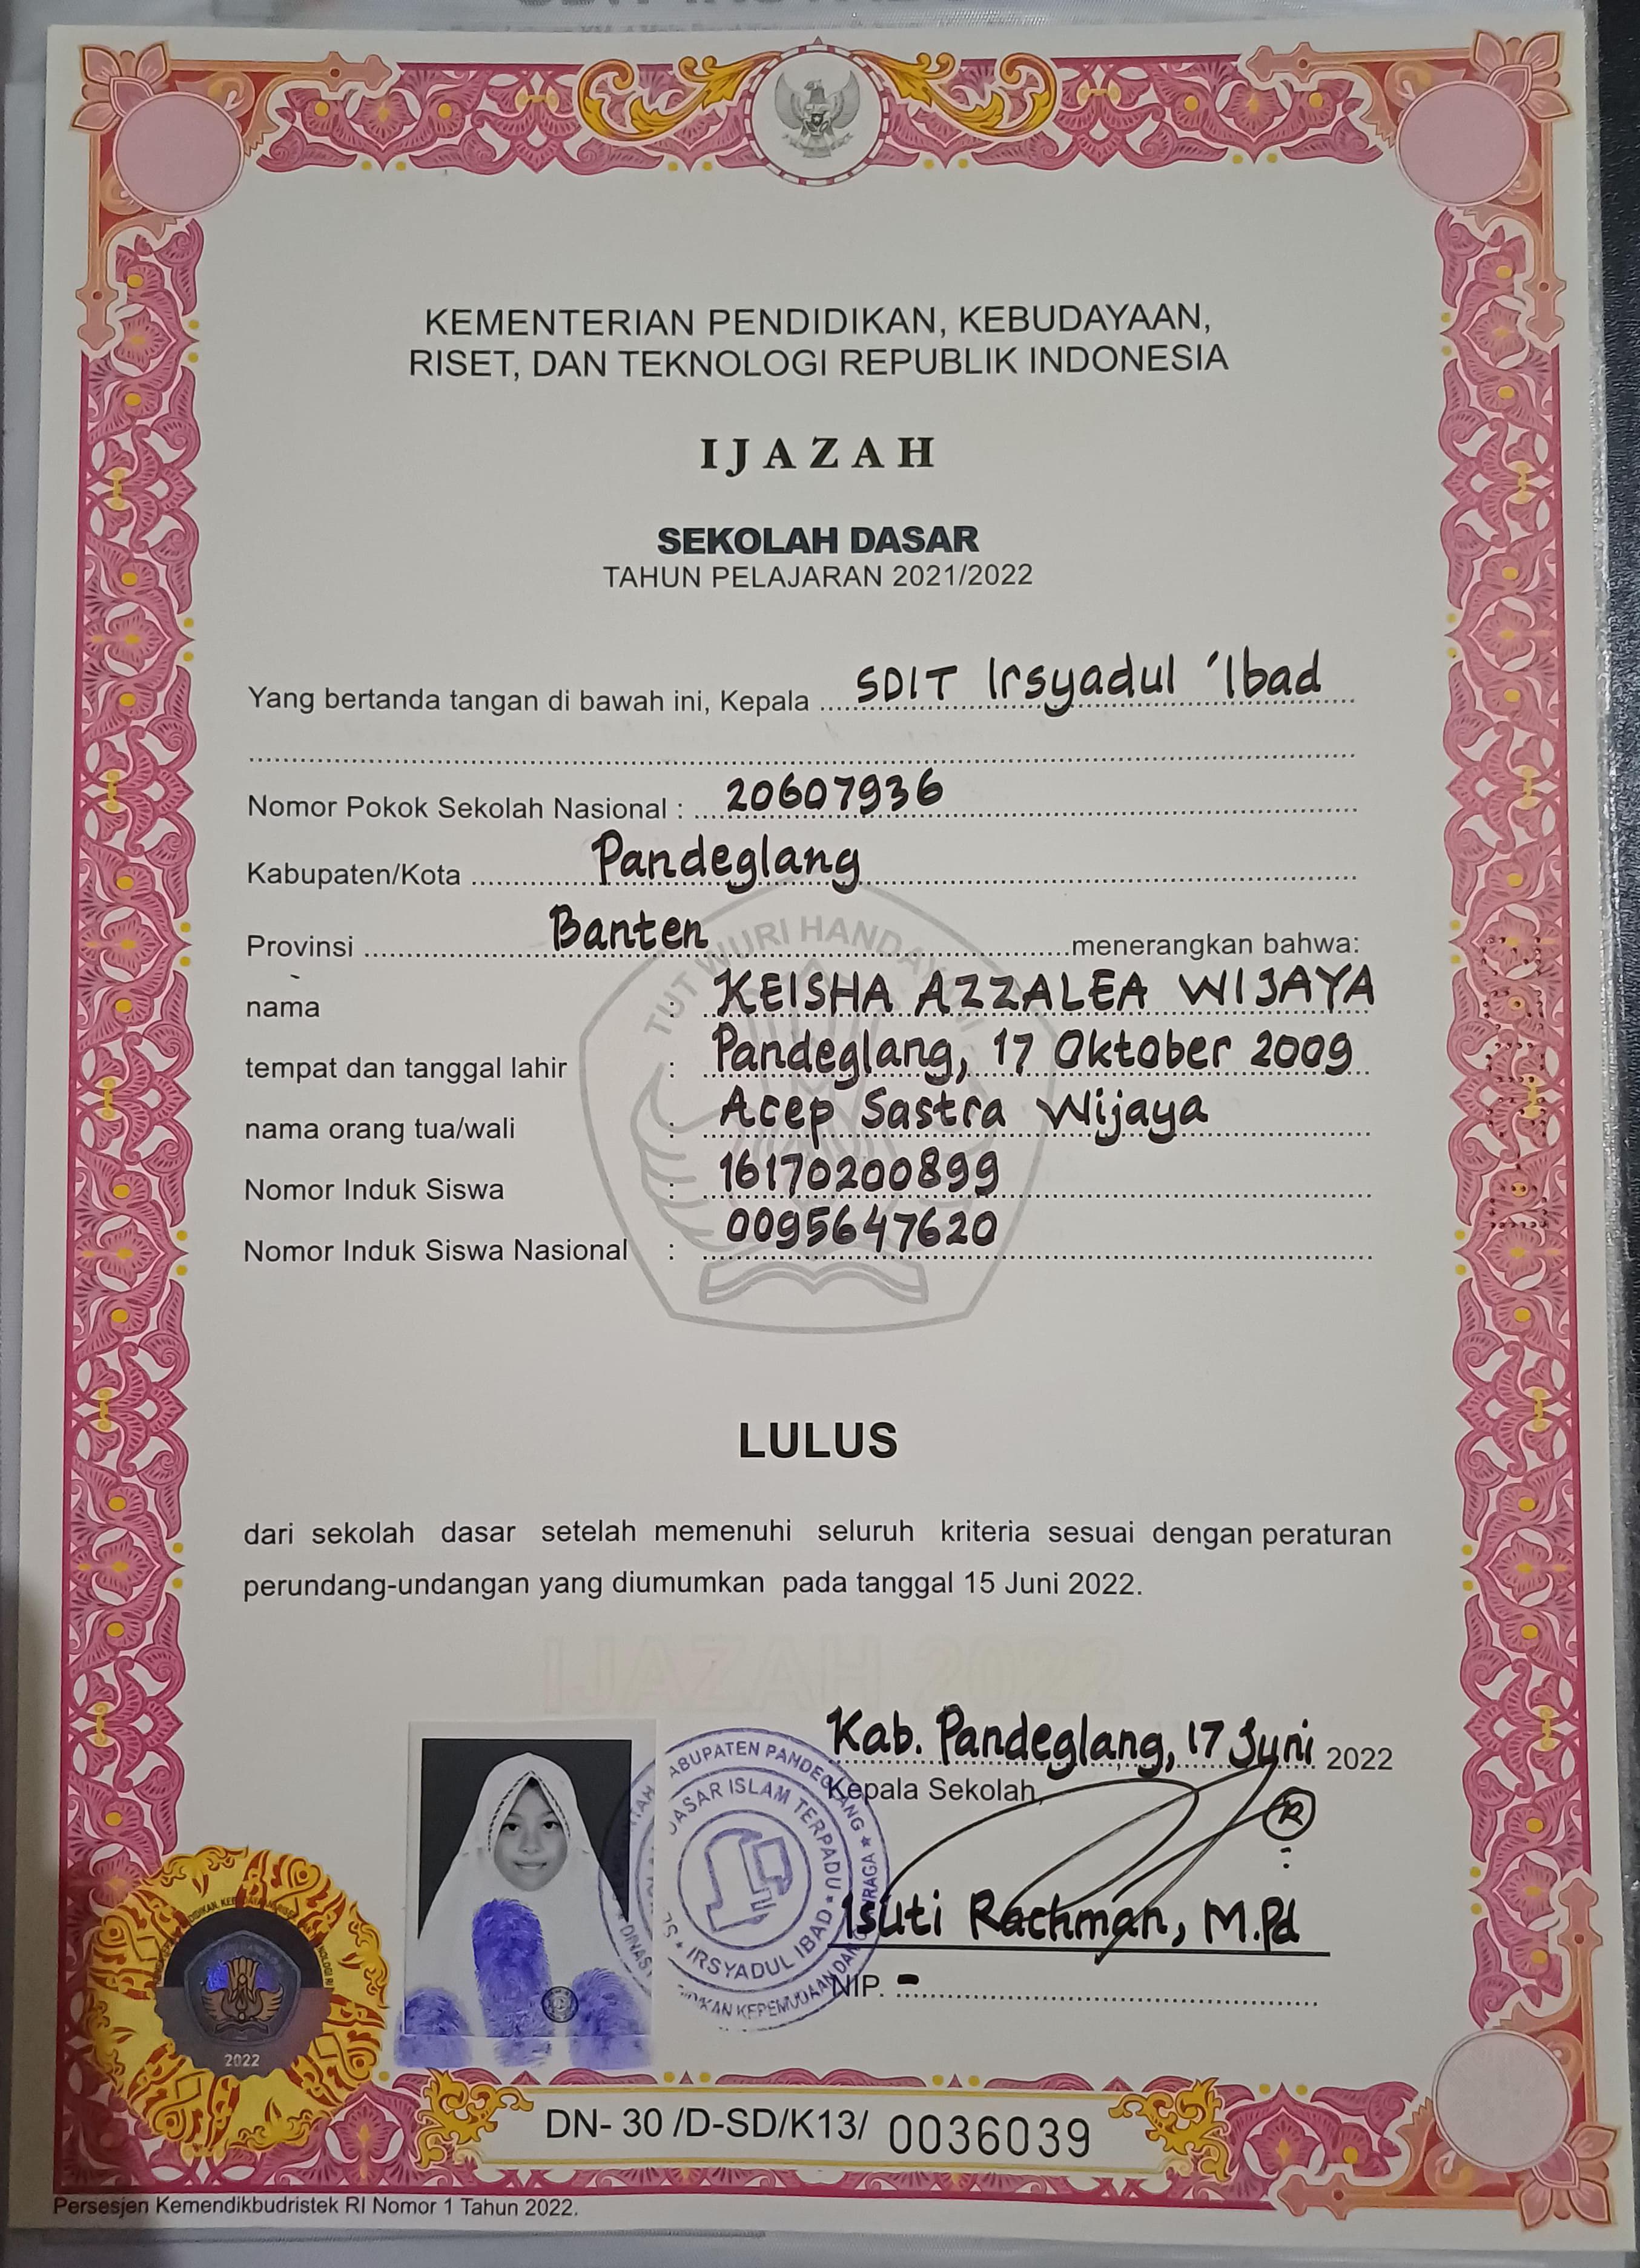 KEMENTERIAN PENDIDIKAN, KEBUDAYAAN,
RISET, DAN TEKNOLOGI REPUBLIK INDONESIA
IJAZAH
SEKOLAH DASAR
TAHUN PELAJARAN 2021/2022
Yang bertanda tangan di bawah ini, Kepala SDIT Irsyadul 'Ibad
Nomor Pokok Sekolah Nasional : 20607936
Kabupaten/Kota Pandeglang
Provinsi Banten menerangkan bahwa:
TUT WURI HANDAYANI
nama : KEISHA AZZALEA WIJAYA
tempat dan tanggal lahir : Pandeglang, 17 Oktober 2009
nama orang tua/wali : Acep Sastra Wijaya
Nomor Induk Siswa : 16170200899
Nomor Induk Siswa Nasional : 0095647620
LULUS
dari sekolah dasar setelah memenuhi seluruh kriteria sesuai dengan peraturan
perundang-undangan yang diumumkan pada tanggal 15 Juni 2022.
IJAZAH 2022
Kab. Pandeglang, 17 Juni 2022
Kepala Sekolah,
KABUPATEN PANDEGLANG
DASAR ISLAM TERPADU
IRSYADUL IBAD
Isuti Rachman, M.Pd
NIP. -
2022
DN- 30 /D-SD/K13/ 0036039
Persesjen Kemendikbudristek RI Nomor 1 Tahun 2022.